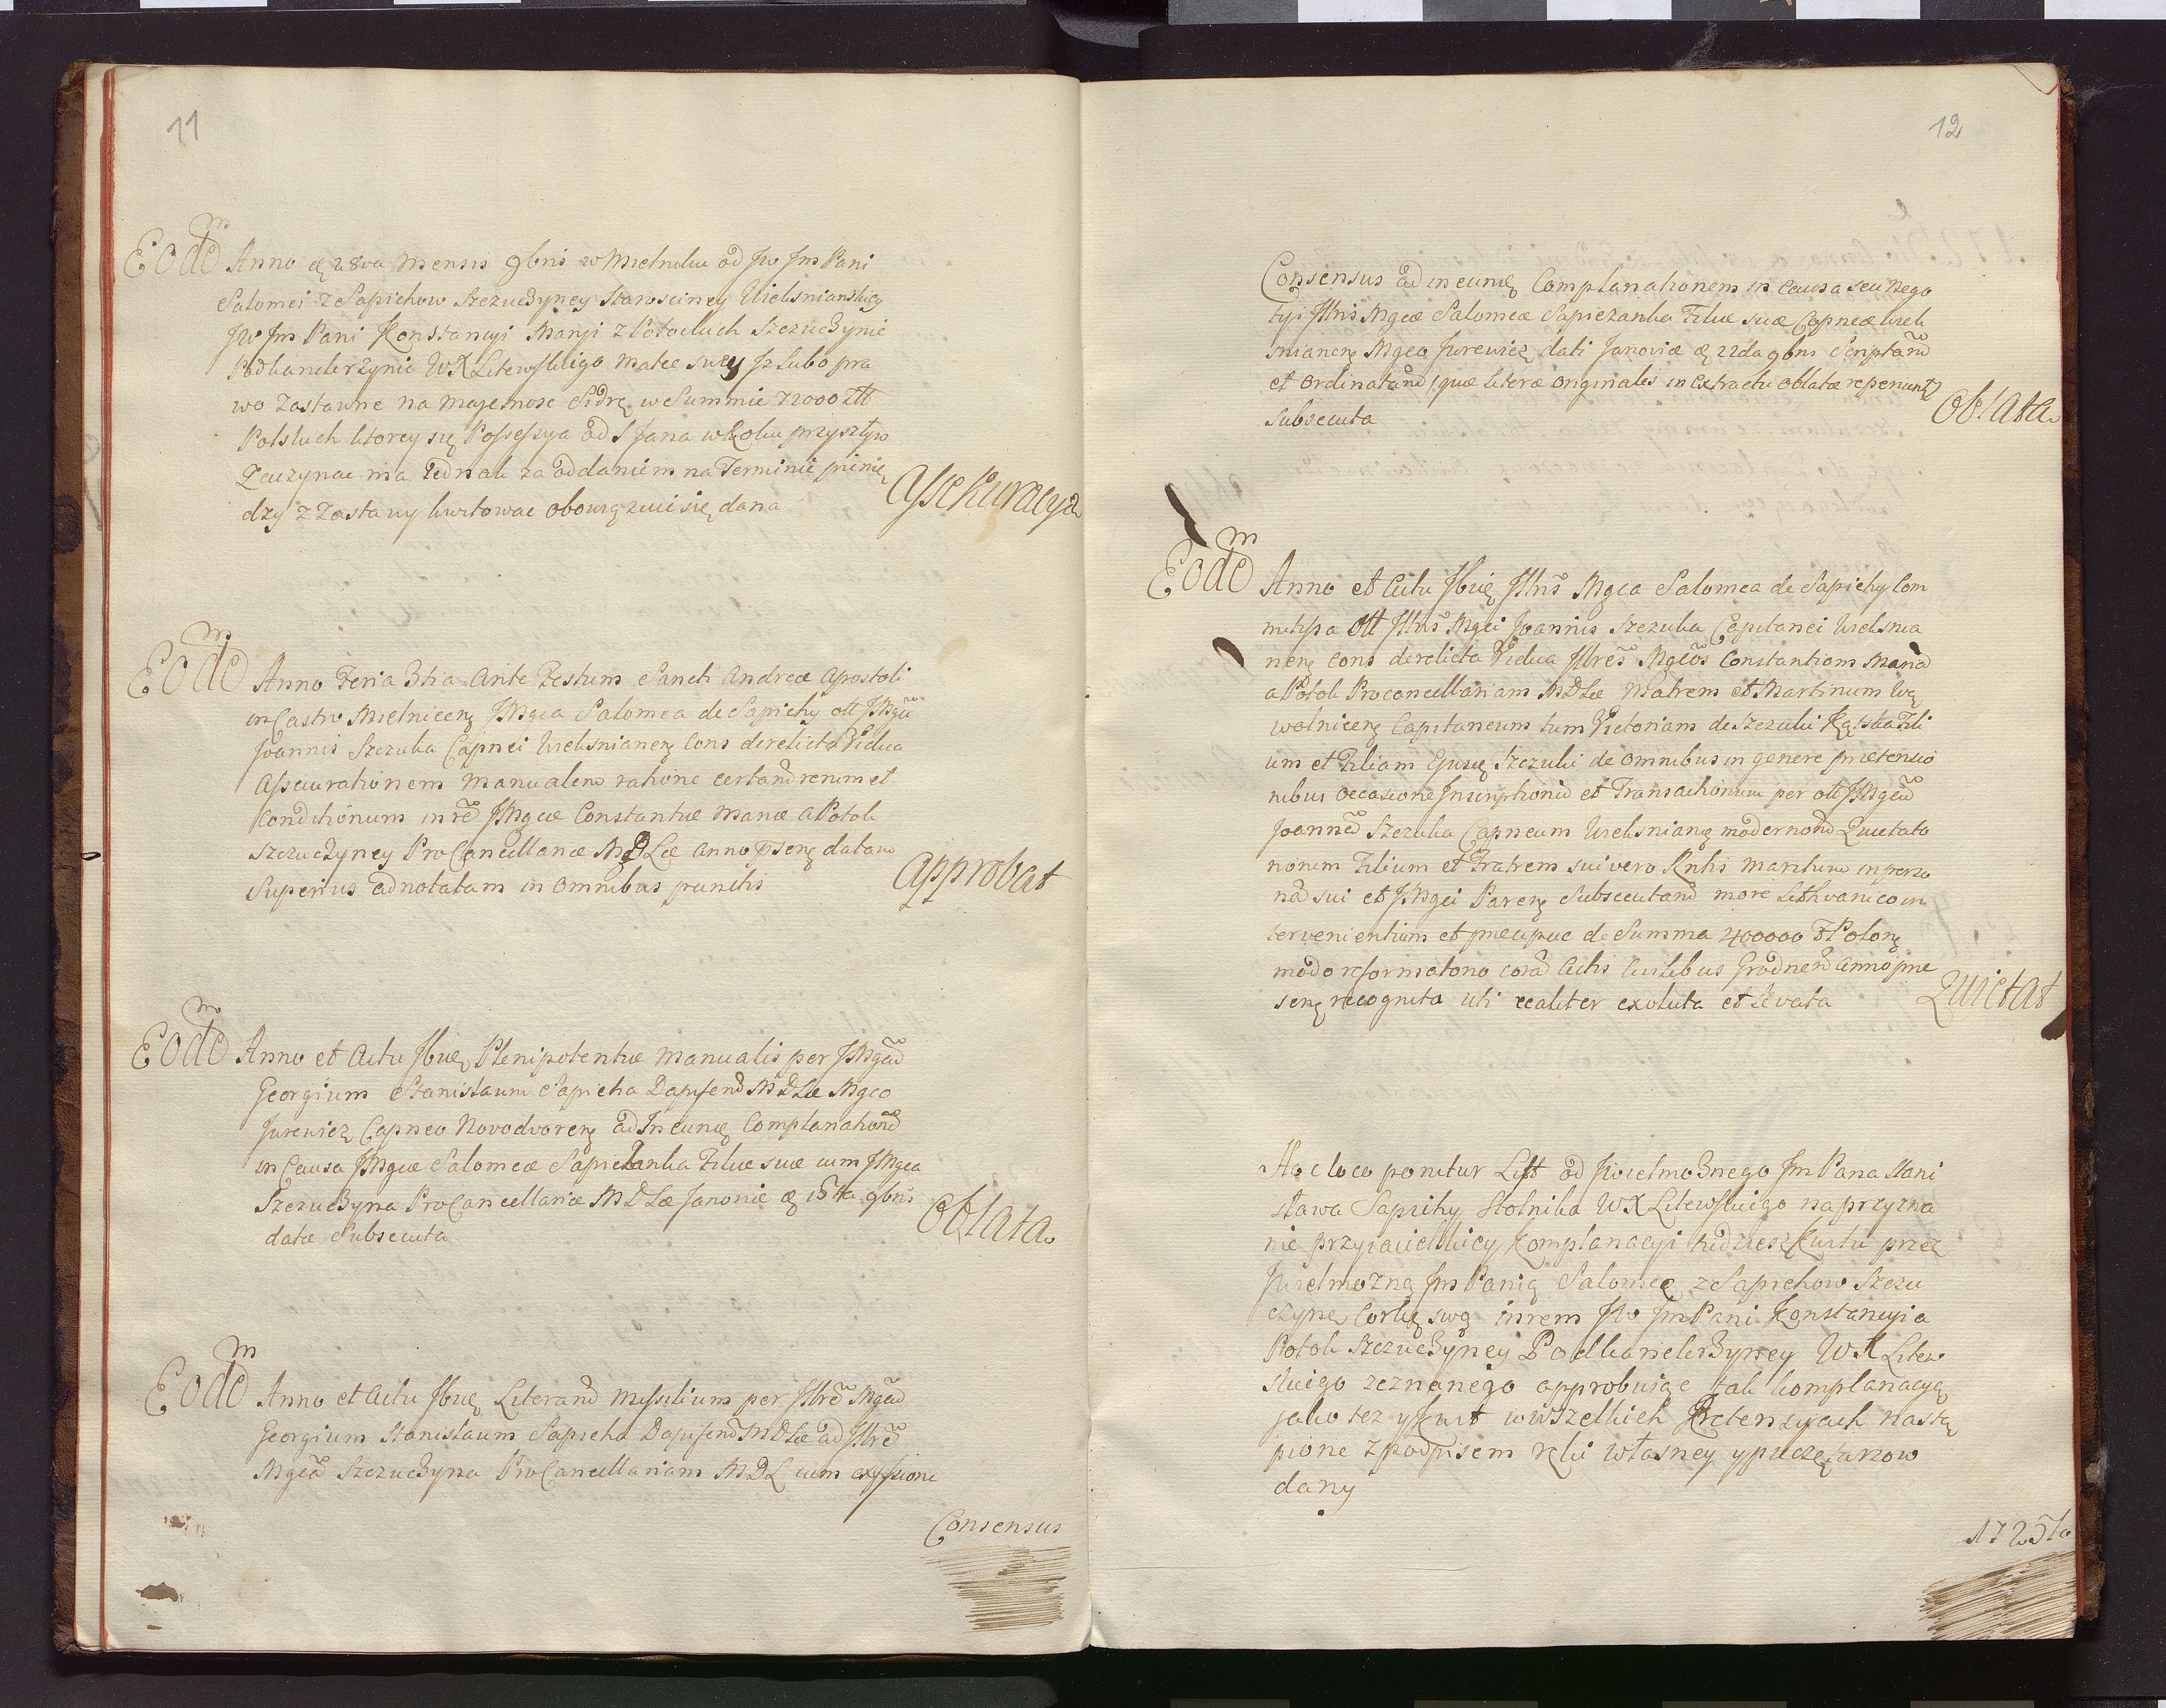 11
Eodem Anno d 28va Mensis 9bris w Mielniku od Jw Jm Pani
Salomei z Sapiehow Szczuczyney Starosciney Wielsnianskiey
Jw Jm Pani Konstancyi Maryi z Potockich Szczuczynie
Podkanclerzynie WX Litewskiego Matce swey Jz lubo pra
wo Zastawne na Majetnosc Sidrę w Summie 72000 Ztt
Polskich ktorey się Possessya od S Jana w Roku przyszłym
Zaczynac ma Jednak za oddaniem na Terminie pienię
dzy z Zastawy kwitowac obowiązuie się dana
Assekuracya
Eodem Anno Feria 3tia Ante Festum Sancti Andreæ Apostoli
in Castro Mielnicen JMgca Salomea de Sapiehy ott JMgci
Joannis Szczuka Capnei Wielsnianen Cons derelicta Vidua
Assecurationem Manualem ratione certarum rerum et
Conditionum in rem JMgcæ Constantiæ Mariæ a Potok
Szczuczyney ProCancellariæ MDLæ Anno psen datam
Superius adnotatam in Omnibus punctis
Approbat
Eodem Anno et Actu Ibidę Plenipotentiæ Manualis per JMgcum
Georgium Stanislaum Sapieha Dapiferum MDLæ Mgco
Jurewicz Capneo Novodvoren ad Ineundę Complanationem
in Causa JMgcæ Salomeæ Sapiezanka Filiæ suæ cum JMgca
Szczuczyna ProCancellaria MDLæ Janoviæ d 15ta 9bris
datæ Subsecuta
Oblata
Eodem Anno et Actu Ibidę Literarum Missilium per Illrem Mgcum
Georgium Stanislaum Sapieha Dapiferum MDLæ ad Illrem
Mgcam Szczuczyna ProCancellariam MDL cum expssione
Consensus
12
Consensus ad ineundę Complanationem in Causa seu Nego
tyi Illris Mgcæ Salomeæ Sapiezanka Filiæ suæ Capneæ Wiel
snianen Mgco Jurewicz dati Janoviæ d 22da 9bris Scriptarum
et Ordinatarum, quæ literæ Originales in Extractu Oblatæ reperiuntur
Subsecuta
Oblata
Eodem Anno et Actu Ibidę Illris Mgca Salomea de Sapiehy Com
mitissa Ott Illris Mgci Joannis Szczuka Capitanei Wielsnia
nen Cons derelicta Vidua Illres Mgcos Constantiam Mariam
a Potok Procancellariam MDLæ Matrem et Martinum Wą
wolnicen Capitaneum tum Victoriam de Szczuki Kątska Fili
um et Filiam Ejusdę Szczuki de Omnibus in genere prætensio
nibus Occasione Inscriptionum et Transactionum per ott JMgcum
Joannem Szczuka Capneum Wielsnianen modernorum Quietato
riorum Filium et Fratrem sui vero Rntis Maritum in perso
nam sui et JMgci Paren Subsecutarum more Lithvanico in
tervenientium et præcipue de Summa 400000 fl Polon
modo reformatorio coram Actis Civilibus Grodnen Anno præ
sen recognita uti realiter exoluta et Levata
Quietat
Hoc loco ponitur List od Jwielmoznego Jm Pana Stani
sława Sapiehy Stolnika WX Litewskiego na przyzna
nie przyiacielskiey Komplanacyi tudziesz Kwitu przez
Jwielmozną Jm Panią Salomeę z Sapiehow Szczu
czynę Corkę swą in rem Jw Jm Pani Konstancyi a
Potok Szczuczyney Podkanclerzyney WX Litew
skiego zeznanego approbuiąc tak komplanacyą
jako tez y Kwit w wszelkich Pretensyach nastą
pione z podpisem ręki własney y pieczętarzow
dany
1725to